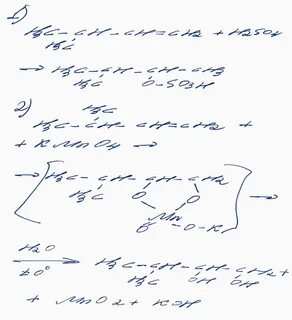 1)
H3C - CH - CH = CH2 + H2SO4
H3C
→ H3C - CH - CH - CH3
H3C O-SO3H
2) H3C
H3C - CH - CH = CH2 +
+ KMnO4 →
→ [H3C - CH - CH - CH2] →
H3C O O
Mn
O - O - K
H2O
→ H3C - CH - CH - CH2 +
t 0° H3C OH OH
+ MnO2 + KOH